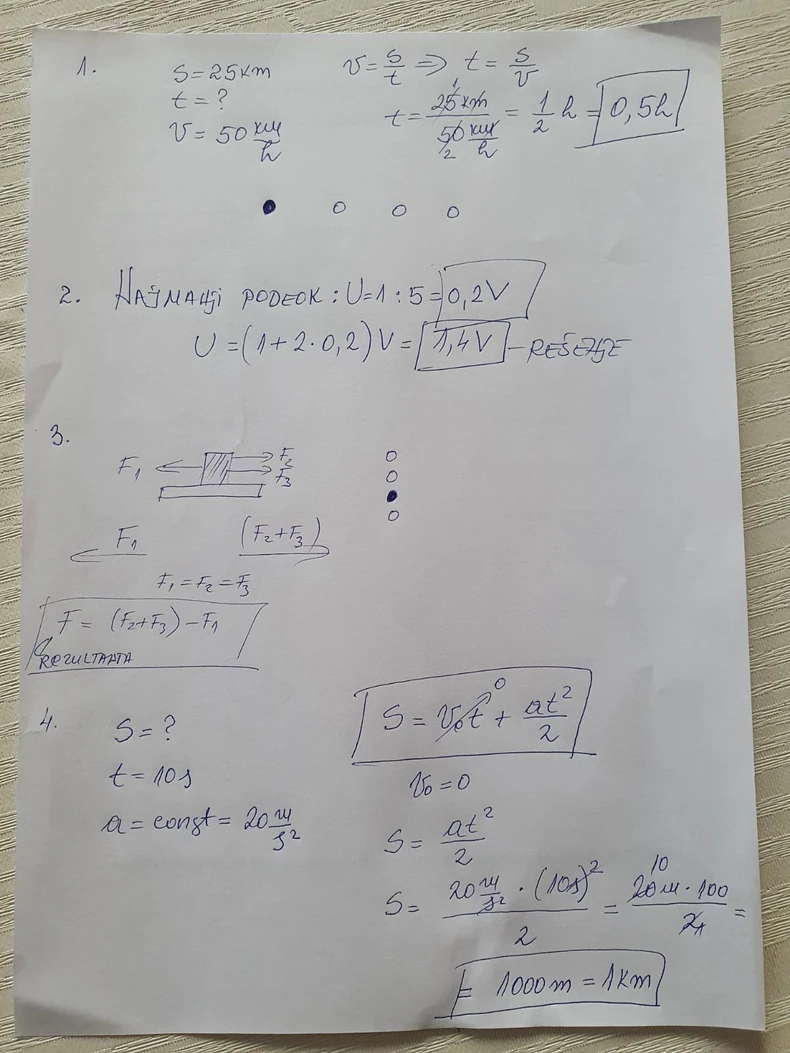 1.
S=25km
t=?
v=50 км/h
v=s/t => t=s/v
t= 25km/50 км/h = 1/2 h = 0,5h
2. Најмањi PODEOK : U=1:5=0,2V
U=(1+2·0,2)V= 1,4V – REŠEЊE
3.
F1
F2
F3
F1 (F2+F3)
F1=F2=F3
F= (F2+F3)-F1
REZULTAНTA
4.
S=?
t=10s
a=const=20 м/s²
S= v0t + at²/2
0
v0=0
S= at²/2
S= 20 м/s² · (10s)² / 2 = 20м·100 / 2 =
10
1
= 1000m = 1km